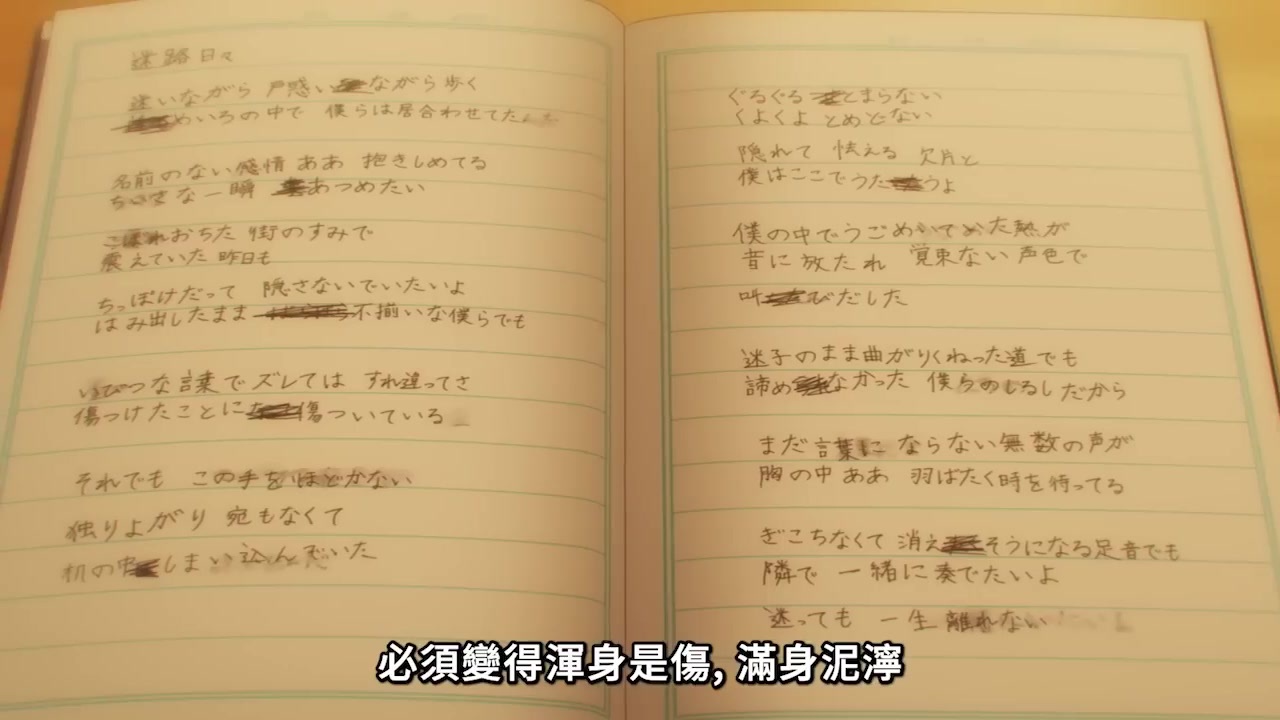 迷路日々
迷いながら 戸惑いながら歩く
めいろの中で 僕らは居合わせてた
名前のない感情 ああ 抱きしめてる
ちいさな一瞬 あつめたい
こぼれおちた 街のすみで
震えていた 昨日も
ちっぽけだって 隠さないでいたいよ
はみ出したまま 不揃いな僕らでも
いびつな言葉でズレては すれ違ってさ
傷つけたことに傷ついている
それでも この手をほどかない
独りよがり 宛もなくて
机の中しまい込んでいた
ぐるぐる とまらない
くよくよ とめどない
隠れて 怯える 欠片と
僕はここでうたうよ
僕の中でうごめいてた熱が
音に放たれ 覚束ない声色で
叫びだした
迷子のまま曲がりくねった道でも
諦めなかった 僕らのしるしだから
まだ言葉に ならない無数の声が
胸の中 ああ 羽ばたく時を待ってる
ぎこちなくて 消えそうになる足音でも
隣で 一緒に奏でたいよ
迷っても 一生 離れない
必須變得渾身是傷, 滿身泥濘